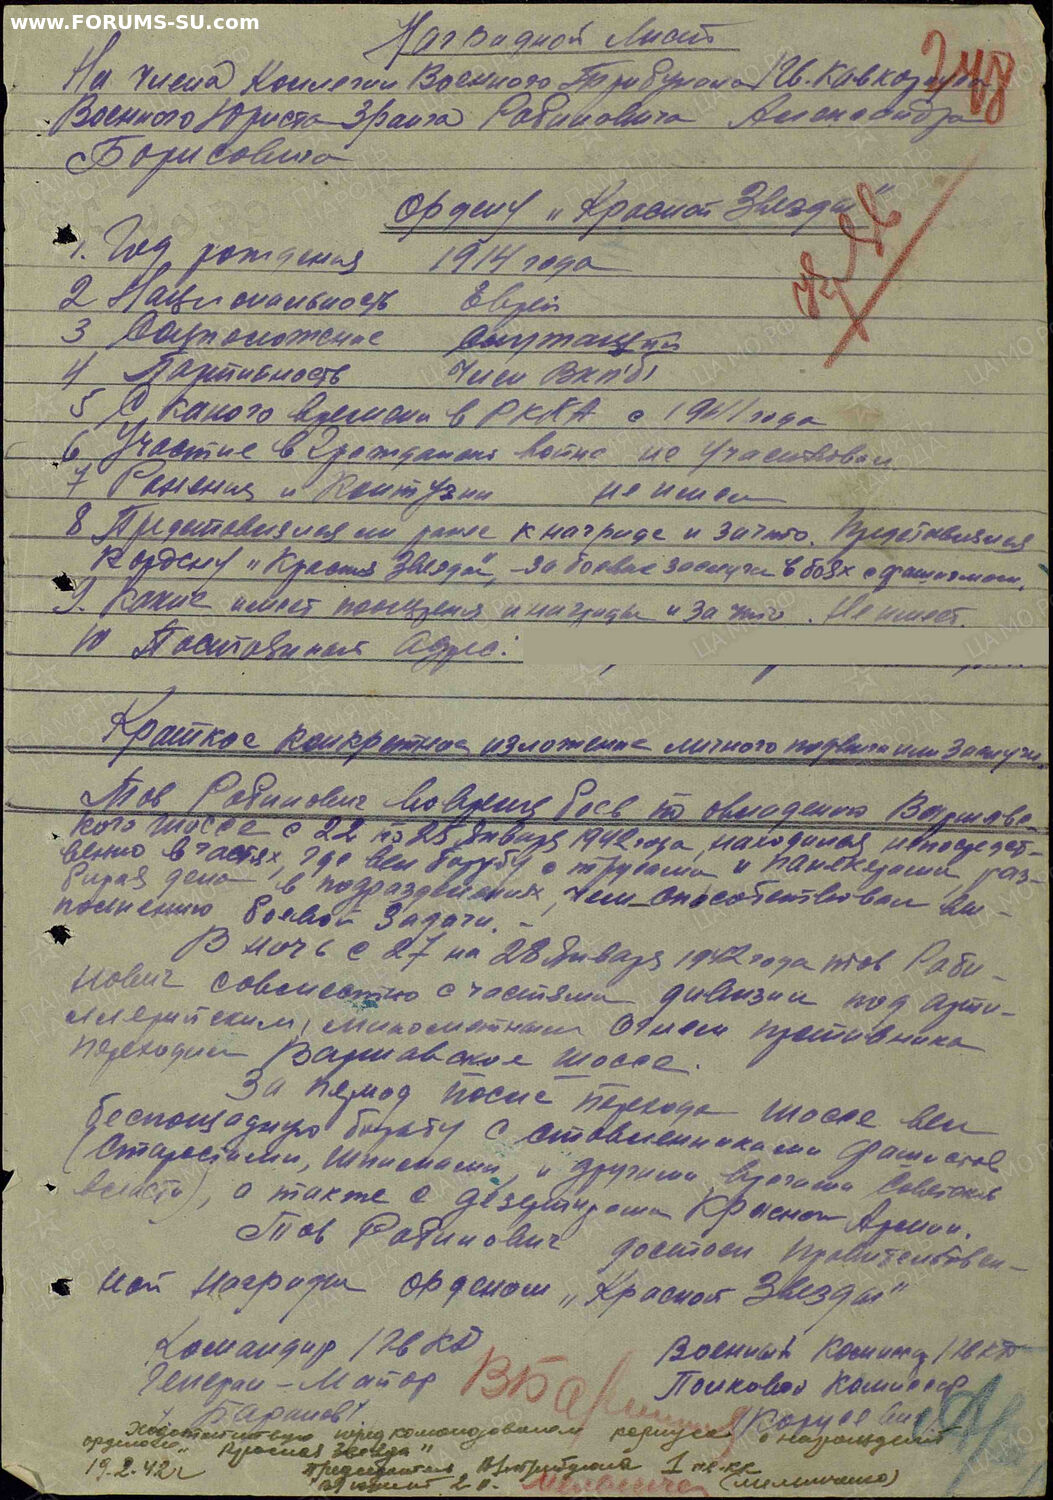 www.FORUMS-SU.com
Наградной Лист
На Члена Коллегии Военного Трибунала 1 Гв. Кавкорпуса
Военного Юриста 3 ранга Рабиновича Александра
Борисовича
Ордену „Красной Звезды"
1. Год рождения 1914 года
2 Национальность Еврей
3 Соцположение Служащий
4 Партийность Член ВКП(б)
5 С какого времени в РККА с 1941 года
6 Участие в Гражданской войне не участвовал
7 Ранения и Контузии не имел
8 Представлялся ли ранее к награде и за что. Представлялся
К ордену „Красная Звезда", - за боевые заслуги в боях с фашизмом.
9. Какие имеет поощрения и награды и за что. Не имеет.
10 Постоянный Адрес:
Краткое конкретное изложение личного подвига или заслуги.
Тов Рабинович во время боев по овладению Варшавс-
кого шоссе с 22 по 25 Января 1942 года, находился непосредст-
венно в частях, где вел борьбу с трусами и паникерами, раз-
бирая дела в подразделениях, чем способствовал вы-
полнению боевой задачи. -
В ночь с 27 на 28 Января 1942 года тов Раби-
нович совместно с частями дивизии под арти-
ллерийским, минометным огнем противника
переходил Варшавское шоссе.
За период после перехода шоссе вел
беспощадную борьбу с ставленниками фашистов
(Старостами, Шпионами, и другими врагами Советской
власти), а также с дезертирами Красной Армии.
Тов Рабинович достоин Правительствен-
ной Награды орденом „Красной Звезды"
Командир 1 Гв КД Военный Комиссар 1 Гв КД
Генерал-Майор Полковой Комиссар
/Баранов/
Ходатайствую перед командованием корпуса о награждении
орденом „Красная Звезда"
19.2.42 г Председатель 1